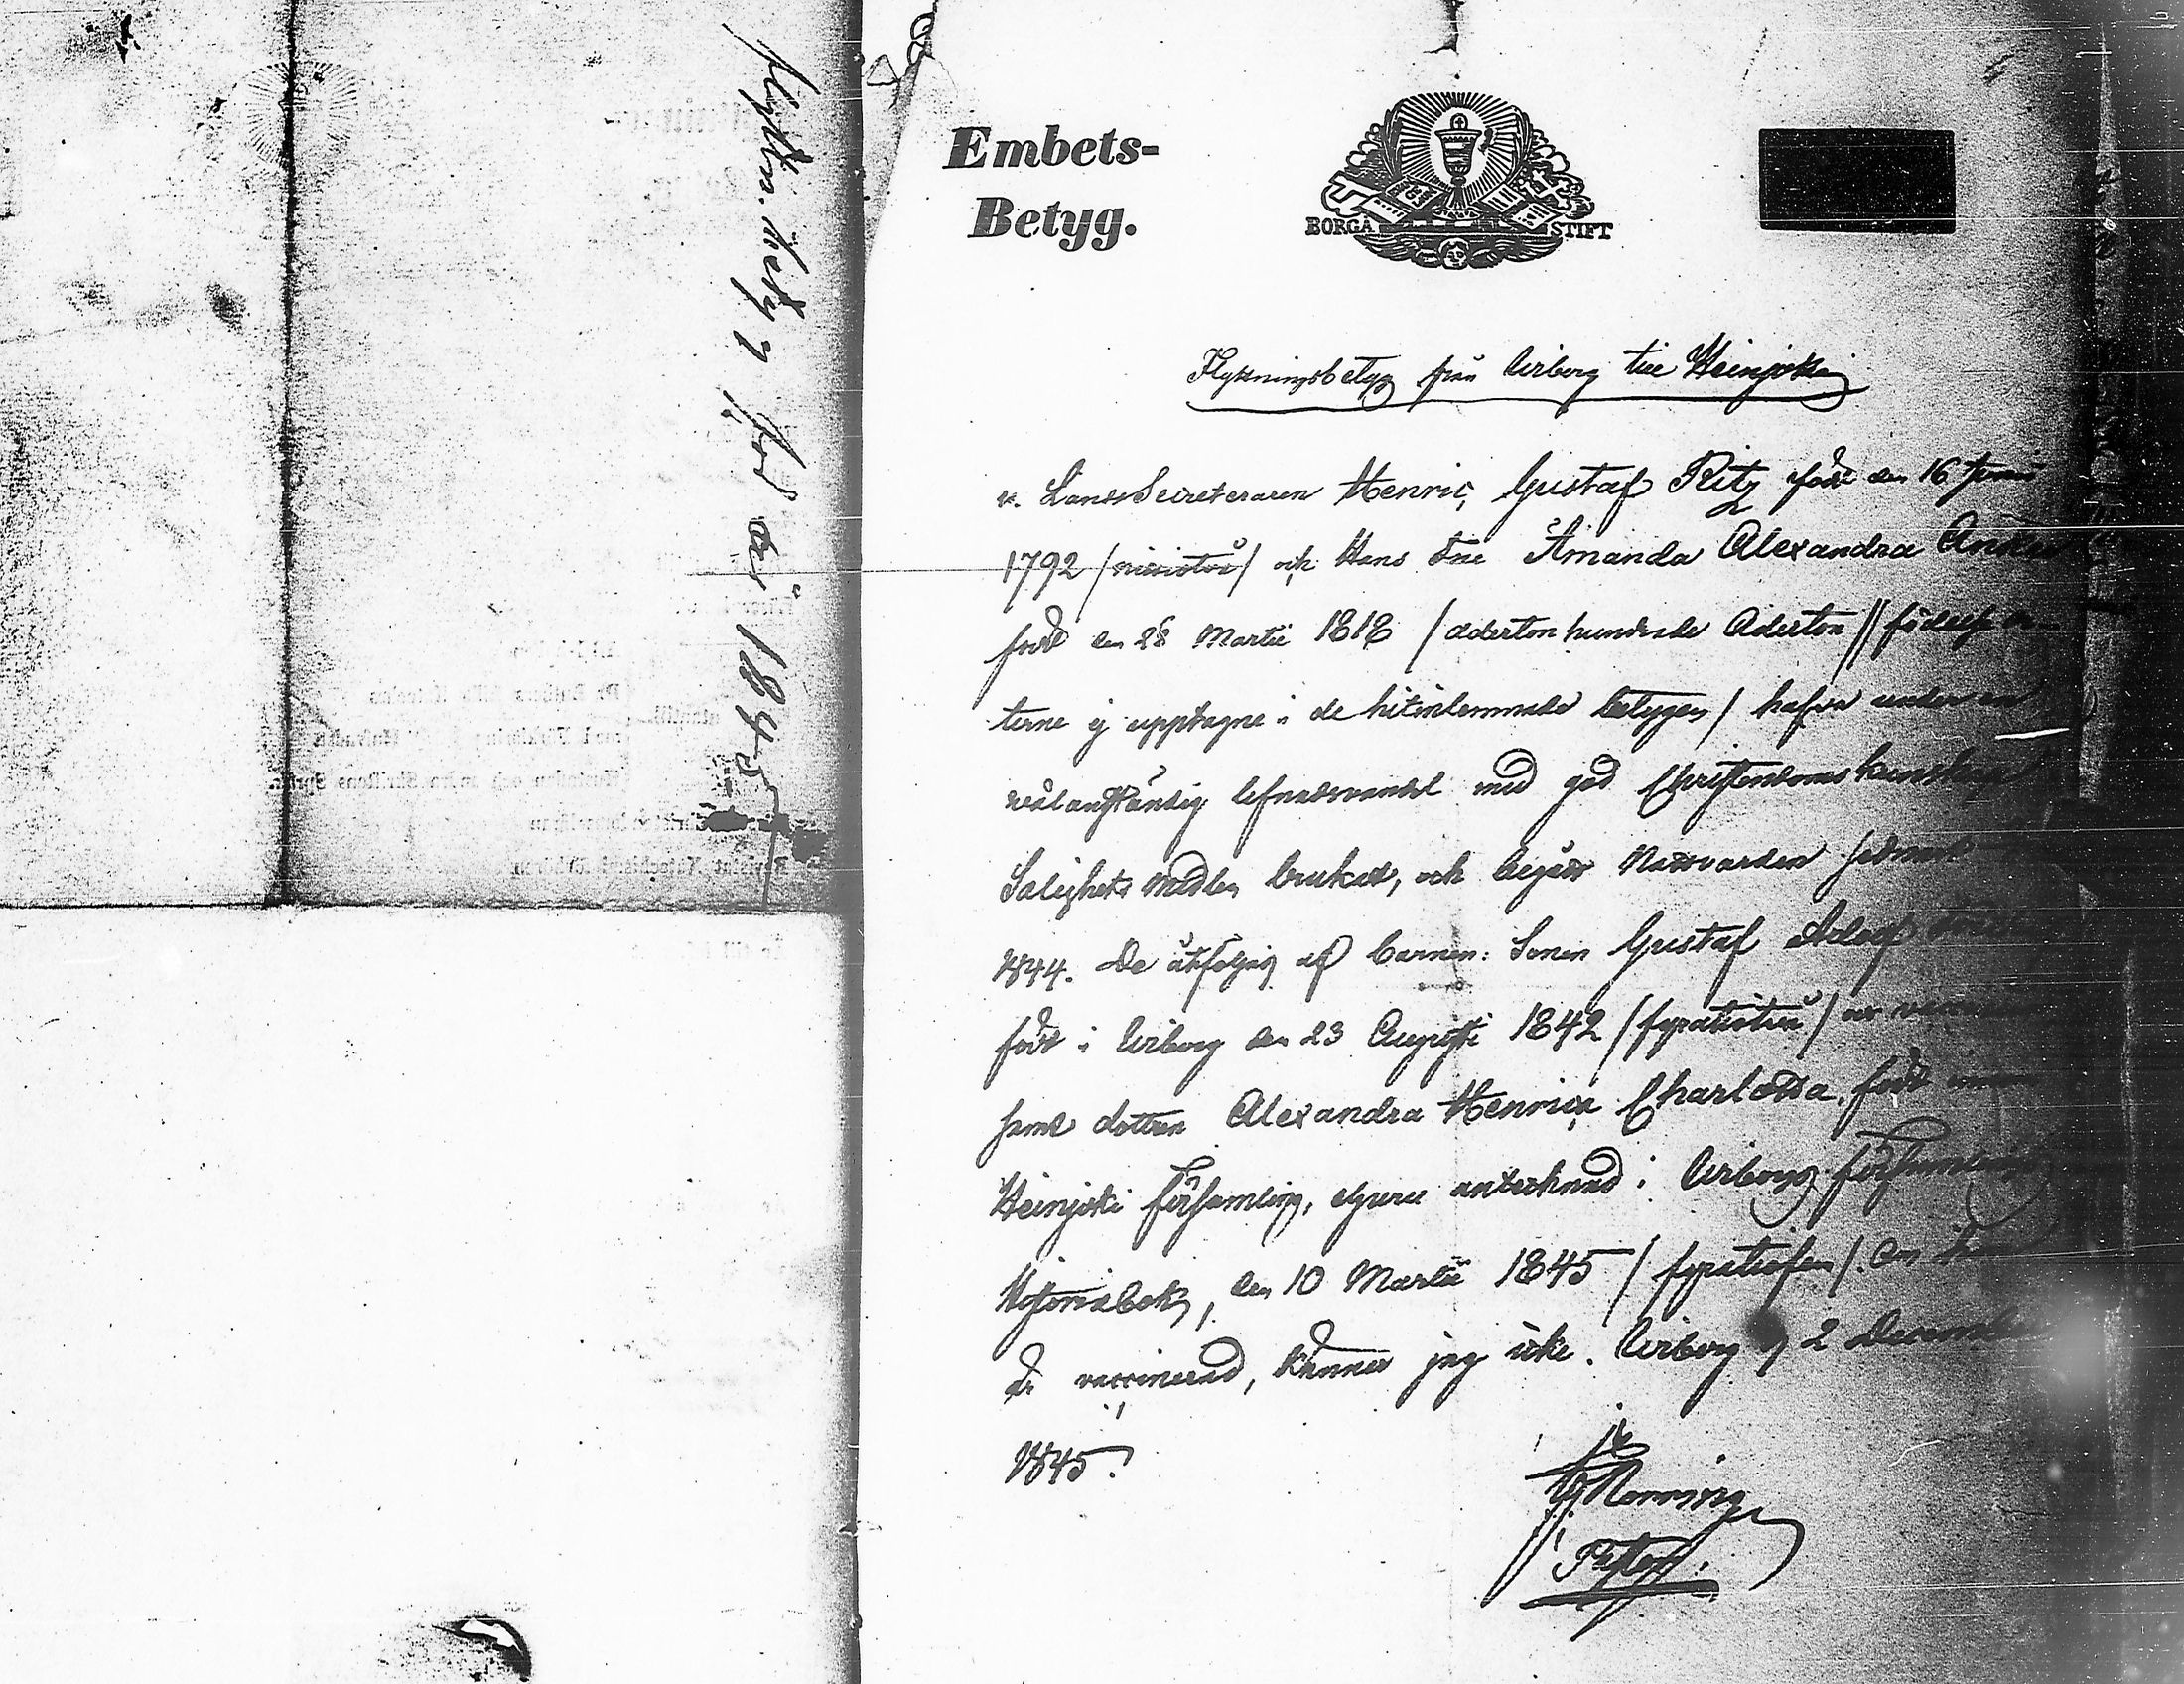 Flyttn. betyg för år 1845
Embets-
Betyg.
BORGÅ STIFT
Flyttningsbetyg från Wiborg till Heinjoki
v. LandsSecreteraren Henric Gustaf Ritz född den 16 Junii
1792 /nittiotvå/ och Hans Fru Amanda Alexandra
född den 28 Martii 1818 /Aderton hundrade Aderton//födelse
terne ej upptagne i de hitinlemnade betygen/ hafva under en
välanständig lefnadsvandel med god Christendomskunskap
Salighets medlen brukat, och begått Nattvarden
1844. De åtföljas af barnen: Sonen Gustaf Adolf
född i Wiborg den 23 Augusti 1842 /fyratiotvå/ är
samt dottren Alexandra Henrica Charlotta, född
Heinjoki församling, antecknad i Wiborgs församlings
Historiebok, den 10 Martii 1845 /fyratiofem/. Om
är vaccinerad, känner jag icke. Wiborg d 2 December
1845.